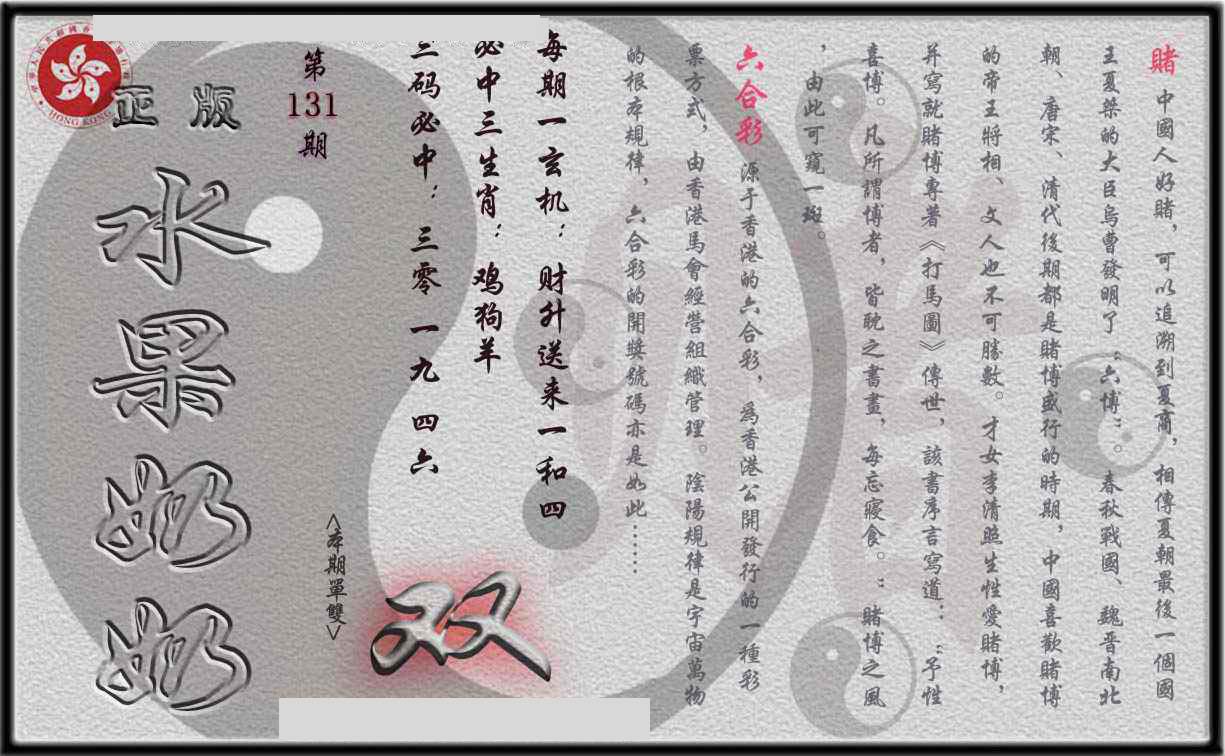 賭 中國人好賭，可以追溯到夏商，相傳夏朝最後一個國
王夏桀的大臣烏曹發明了“六博”。春秋戰國、魏晋南北
朝、唐宋、清代後期都是賭博盛行的時期，中國喜歡賭博
的帝王將相、文人也不可勝數。才女李清照生性愛賭博，
并寫就賭博專著《打馬圖》傳世，該書序言寫道：“予性
喜博。凡所謂博者，皆耽之書畫，每忘寢食。”賭博之風
，由此可窺一斑。
六合彩 源于香港的六合彩，為香港公開發行的一種彩
票方式，由香港馬會經營組織管理。陰陽規律是宇宙萬物
的根本規律，六合彩的開獎號碼亦是如此……
每期一玄机：财升送来一和四
必中三生肖：鸡狗羊
三码必中：三零 一九 四六
双
<本期單雙>
第
131
期
正版
水果奶奶
HONG KONG